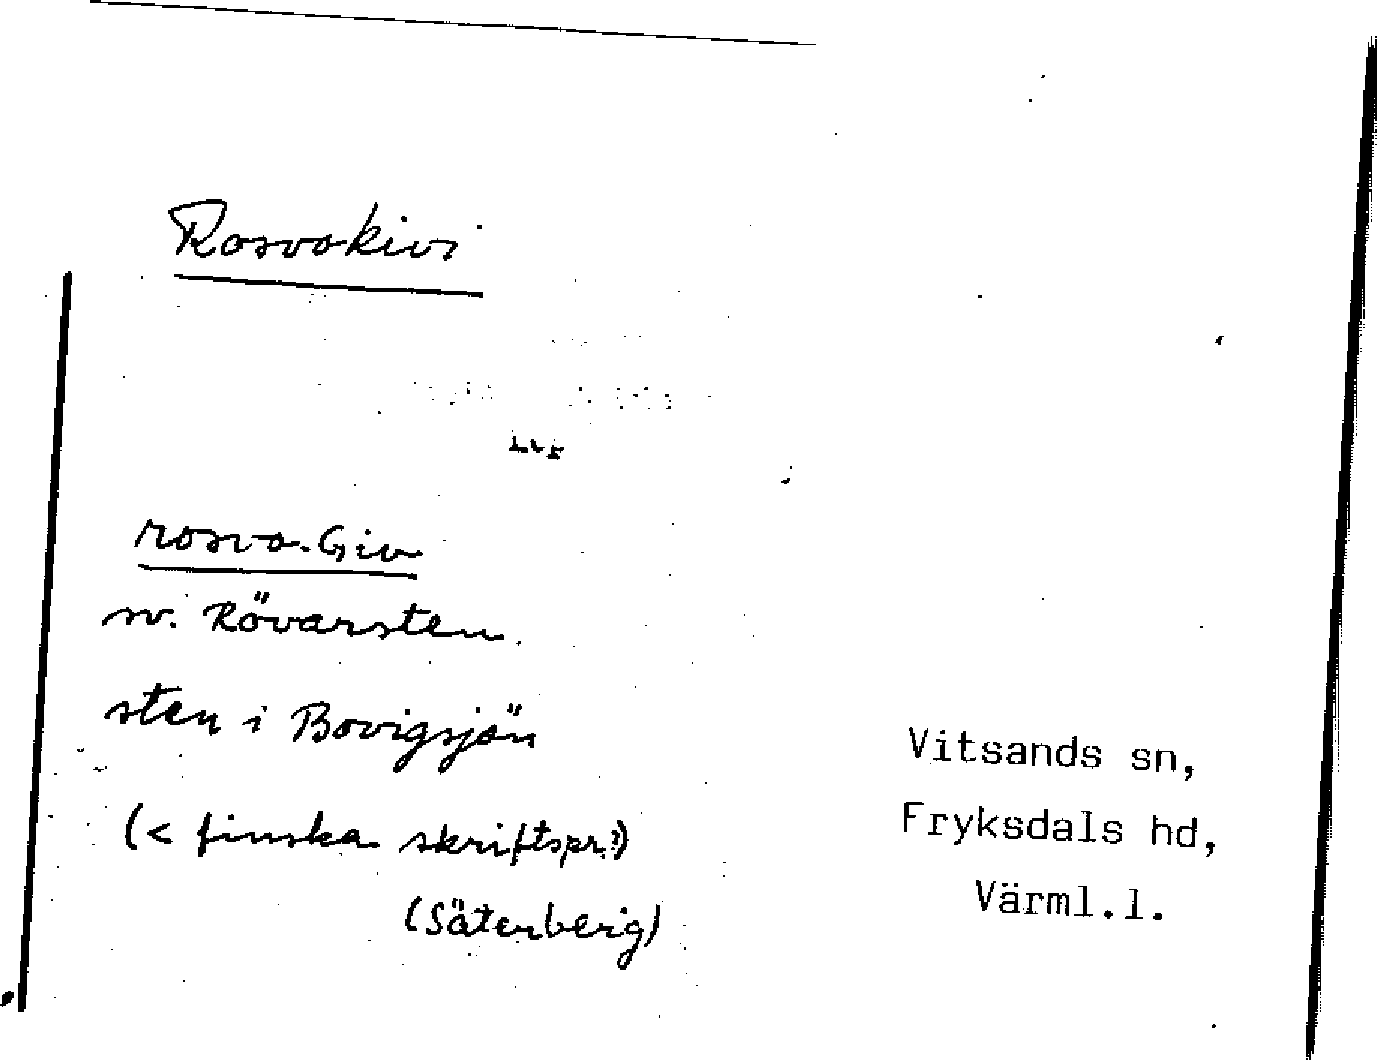 Rosvokivi
rosvo-Giv
sv. Rövarsten
sten i Bovigsjön
(< finska skriftspr.?)
(Säterberg)
Vitsands sn,
Fryksdals hd,
Värml.l.